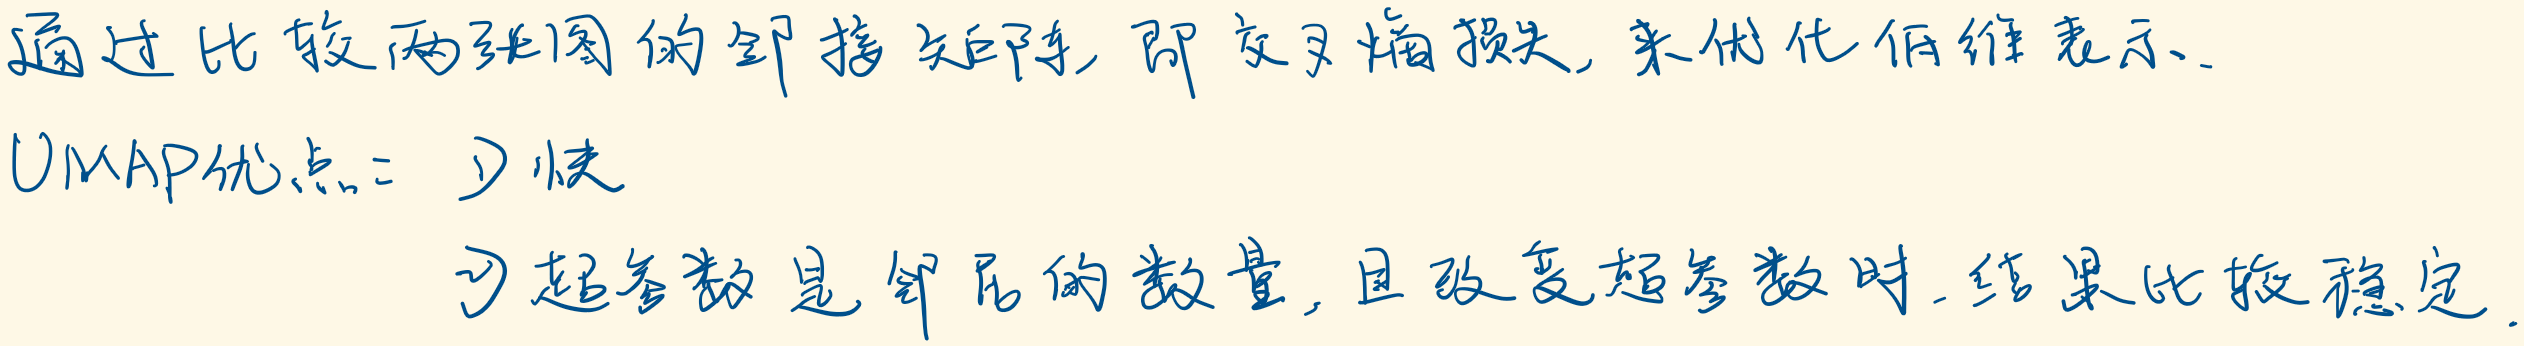 通过比较两张图的邻接矩阵,即交叉熵损失,来优化低维表示.
UMAP优点: 1) 快
2) 超参数是邻居的数量,且改变超参数时.结果比较稳定.